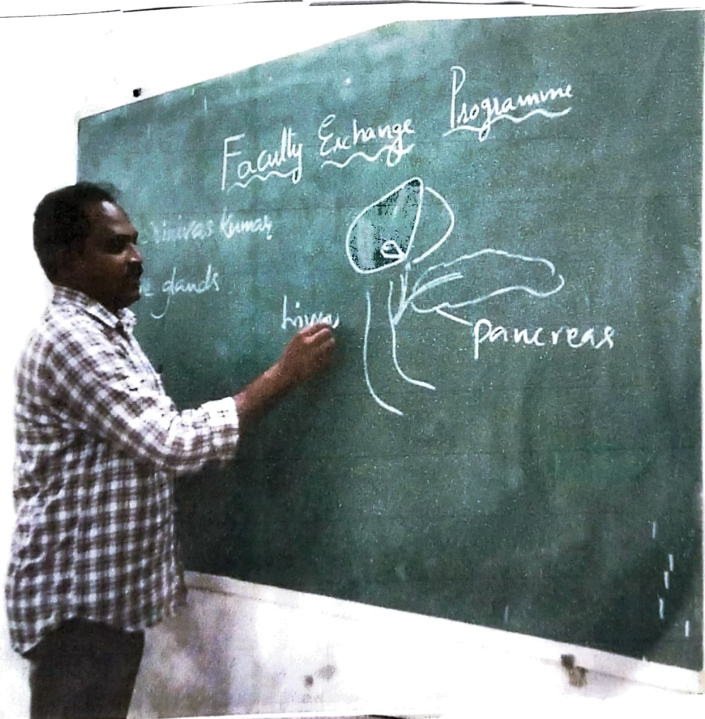 Faculty Exchange Programme
Srinivas Kumar
glands
Liver
pancreas